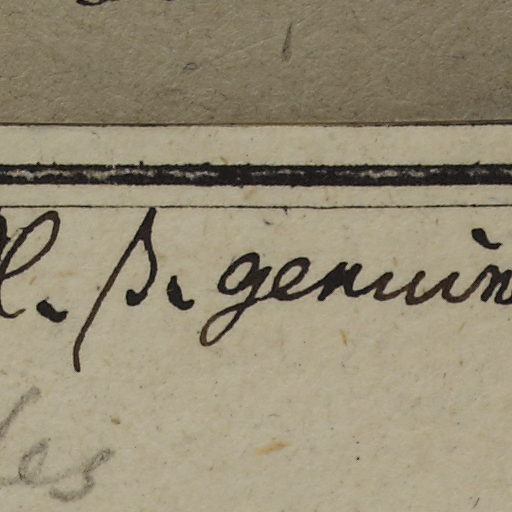 l. β. genuin
les